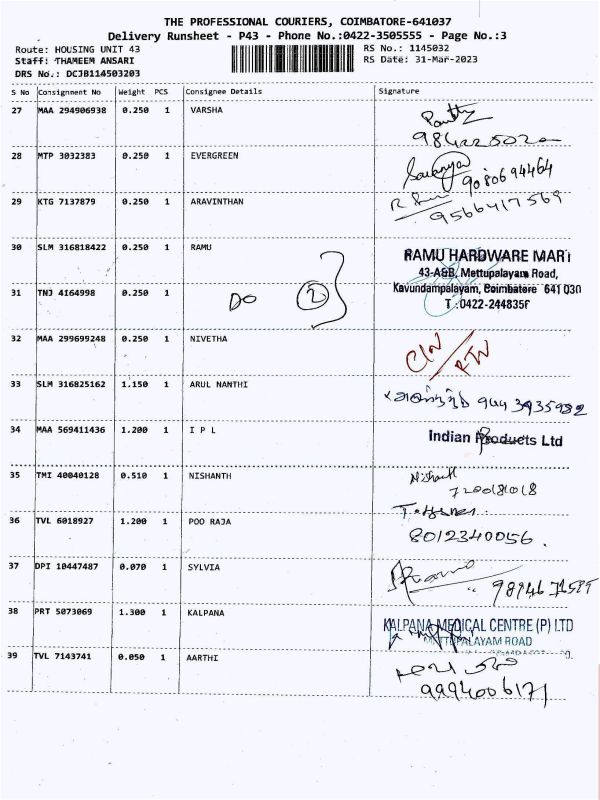 THE PROFESSIONAL COURIERS, COIMBATORE-641037
Delivery Runsheet - P43 - Phone No.:0422-3505555 - Page No.:3
Route: HOUSING UNIT 43 RS No.: 1145032
Staff: THAMEEM ANSARI RS Date: 31-Mar-2023
DRS No.: DCJB114503203
S No Consignment No Weight PCS Consignee Details Signature
27 MAA 294906938 0.250 1 VARSHA
28 MTP 3032383 0.250 1 EVERGREEN
9080694464
29 KTG 7137879 0.250 1 ARAVINTHAN
9566417569
30 SLM 316818422 0.250 1 RAMU
RAMU HARDWARE MART
43-A&B, Mettupalayam Road,
31 TNJ 4164998 0.250 1 DO 2
Kavundampalayam, Coimbatore 641 030
T :0422-244835
32 MAA 299699248 0.250 1 NIVETHA
33 SLM 316825162 1.150 1 ARUL NANTHI
944 3935982
34 MAA 569411436 1.200 1 I P L
Indian Products Ltd
35 TMI 40040128 0.510 1 NISHANTH
Nishanth
36 TVL 6018927 1.200 1 POO RAJA
8012340056.
37 DPI 10447487 0.070 1 SYLVIA
38 PRT 5073069 1.300 1 KALPANA
KALPANA MEDICAL CENTRE (P) LTD
METTUPALAYAM ROAD
39 TVL 7143741 0.050 1 AARTHI
9994006171